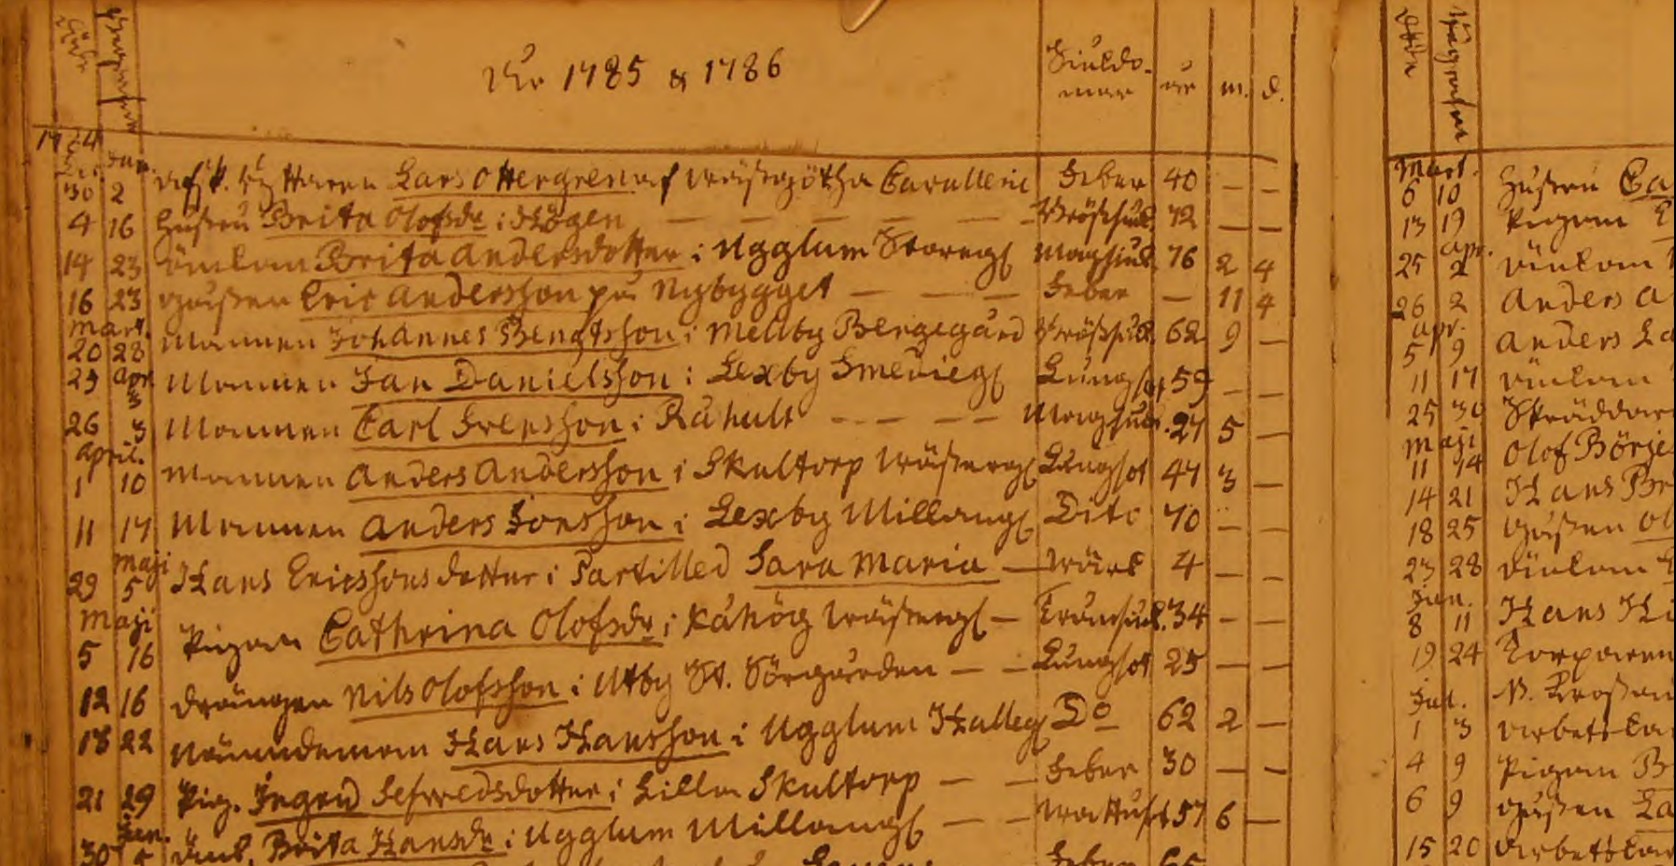 År 1785 & 1786
Siukdomar år m. d.
Jan.
30 2 afsk. Ryttaren Lars Ottergren af Wästgötha Cavallerie Feber 40 — —
4 16 Hustru Brita Olofsdr i Högen — — — — — Bröstsiuk. 72 — —
14 23 Änkan Brita Andersdotter i Ugglum Storeg. Magsiuk. 76 2 4
16 23 Gossen Eric Andersson på Nybygget — — — Feber — 11 4
Mart.
20 28 Mannen Johannes Bengtsson i Mellby Bergegård Bröstsiuk. 62 9 —
Apr.
29 3 Mannen Jan Danielsson i Lexby Smedieg. Lungsot 59 — —
26 3 Mannen Carl Svensson i Råhult — — — — Magsiuk. 27 5 —
April.
1 10 Mannen Anders Andersson i Skultorp Wästerg. Lungsot 47 3 —
11 17 Mannen Anders Jonsson i Lexby Millang. Dito 70 — —
Maji
29 5 Hans Ericssons dotter i Partilled Sara Maria — Wärk 4 — —
Maji
5 16 Pigan Cathrina Olofsdr i Kåhög Wästerg. — 34 — —
12 16 Drängen Nils Olofsson i Utby St. Törgården — — Lungsot 25 — —
18 22 Nämndeman Hans Hansson i Ugglum Halleg. Do 62 2 —
21 29 Pig. Ingrid Sefredsdotter i Lilla Skultorp — — Feber 30 — —
Jun.
30 5 Änk. Brita Hansdr i Ugglum Millang. — — Wattus. 57 6 —
Feber 65
Mart.
6 10 Hustru Ca
13 19 Pigan
Apr.
25 2 Änkan
26 2 Anders A
Apr.
5 9 Anders La
11 17 Änkan
25 30 Skräddar
Maji
11 14 Olof Börje
14 21 Hans Br
18 25 Gossen Ol
23 28 Änkan
Jun.
8 11 Hans H
19 24 Torparen
Jul.
1 3 Arbetska
4 9 Pigan B
6 9 Gossen La
15 20 Arbetska